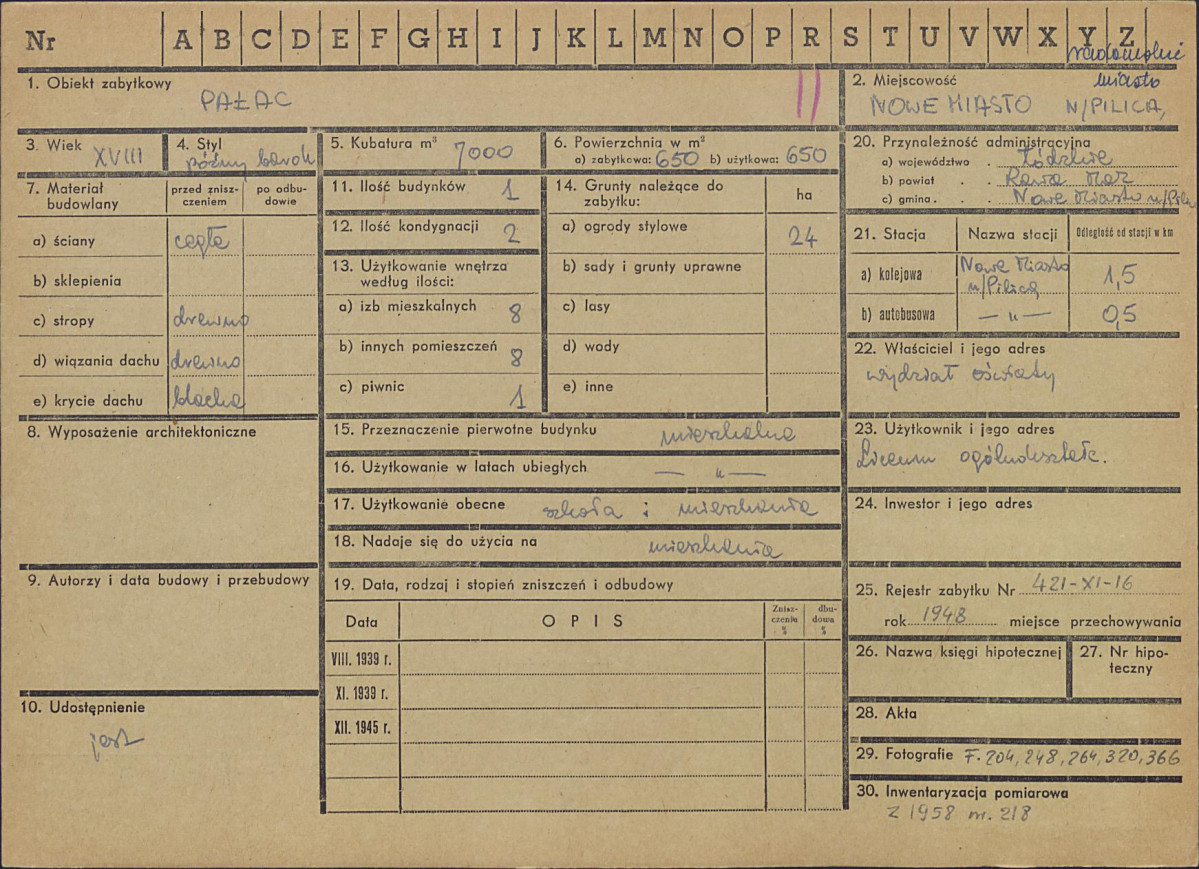 Nr A B C D E F G H I J K L M N O P R S T U V W X Y Z
1. Obiekt zabytkowy
PAŁAC
II
2. Miejscowość miasto
NOWE MIASTO N/PILICĄ,
3. Wiek XVIII
4. Styl późny barok
5. Kubatura m³ 7000
6. Powierzchnia w m²
a) zabytkowa: 650 b) użytkowa: 650
7. Materiał budowlany
przed zniszczeniem
po odbudowie
a) ściany cegła
b) sklepienia
c) stropy drewno
d) wiązania dachu drewno
e) krycie dachu blacha
8. Wyposażenie architektoniczne
9. Autorzy i data budowy i przebudowy
10. Udostępnienie
jest
11. Ilość budynków 1
12. Ilość kondygnacji 2
13. Użytkowanie wnętrza
według ilości:
a) izb mieszkalnych 8
b) innych pomieszczeń 8
c) piwnic 1
14. Grunty należące do
zabytku:
ha
a) ogrody stylowe 24
b) sady i grunty uprawne
c) lasy
d) wody
e) inne
15. Przeznaczenie pierwotne budynku mieszkalne
16. Użytkowanie w latach ubiegłych — „ —
17. Użytkowanie obecne szkoła i mieszkania
18. Nadaje się do użycia na mieszkania
19. Data, rodzaj i stopień zniszczeń i odbudowy
Data OPIS Znisz-czenia % dbu-dowa %
VIII. 1939 r.
XI. 1939 r.
XII. 1945 r.
20. Przynależność administracyjna
a) województwo . Łódzkie
b) powiat . . Rawa Maz
c) gmina . . . Nowe Miasto n/Pilicą
21. Stacja Nazwa stacji Odległość od stacji w km
a) kolejowa Nowe Miasto n/Pilicą 1,5
b) autobusowa — „ — 0,5
22. Właściciel i jego adres
wydział oświaty
23. Użytkownik i jego adres
Liceum ogólnokształc.
24. Inwestor i jego adres
25. Rejestr zabytku Nr 421-XI-16
rok 1948 miejsce przechowywania
26. Nazwa księgi hipotecznej
27. Nr hipo-
teczny
28. Akta
29. Fotografie F. 204, 248, 264, 320, 366
30. Inwentaryzacja pomiarowa
Z 1958 nr. 218